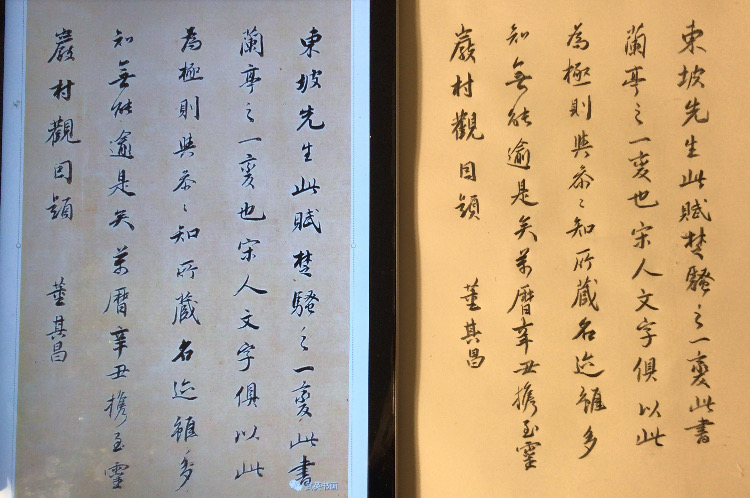 東坡先生此賦楚騷之一變此書
蘭亭之一變也宋人文字俱以此
為極則與參々知所藏名迹雖多
知無能逾是矣萬曆辛丑攜至靈
巖村觀因題
董其昌
東坡先生此賦楚騷之一變此書
蘭亭之一變也宋人文字俱以此
為極則與參々知所藏名迹雖多
知無能逾是矣萬曆辛丑攜至靈
巖村觀因題
董其昌